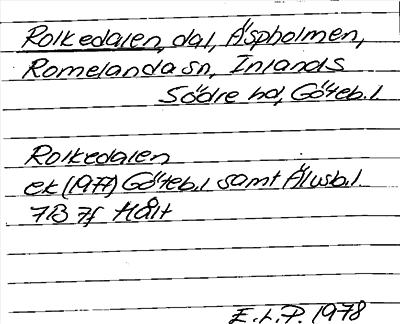 Rolkedalen, dal, Äspholmen,
Romelanda sn, Inlands
Södre hd, Göteb.l.
Rolkedalen
ek (1977) Göteb.l samt Älvsb.l.
7B 7f Hålt
E.L.P. 1978